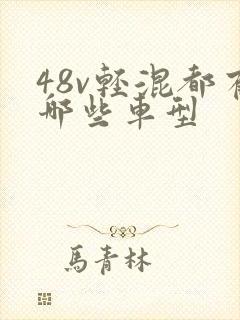 48v輕混都有
哪些車型
馬青林